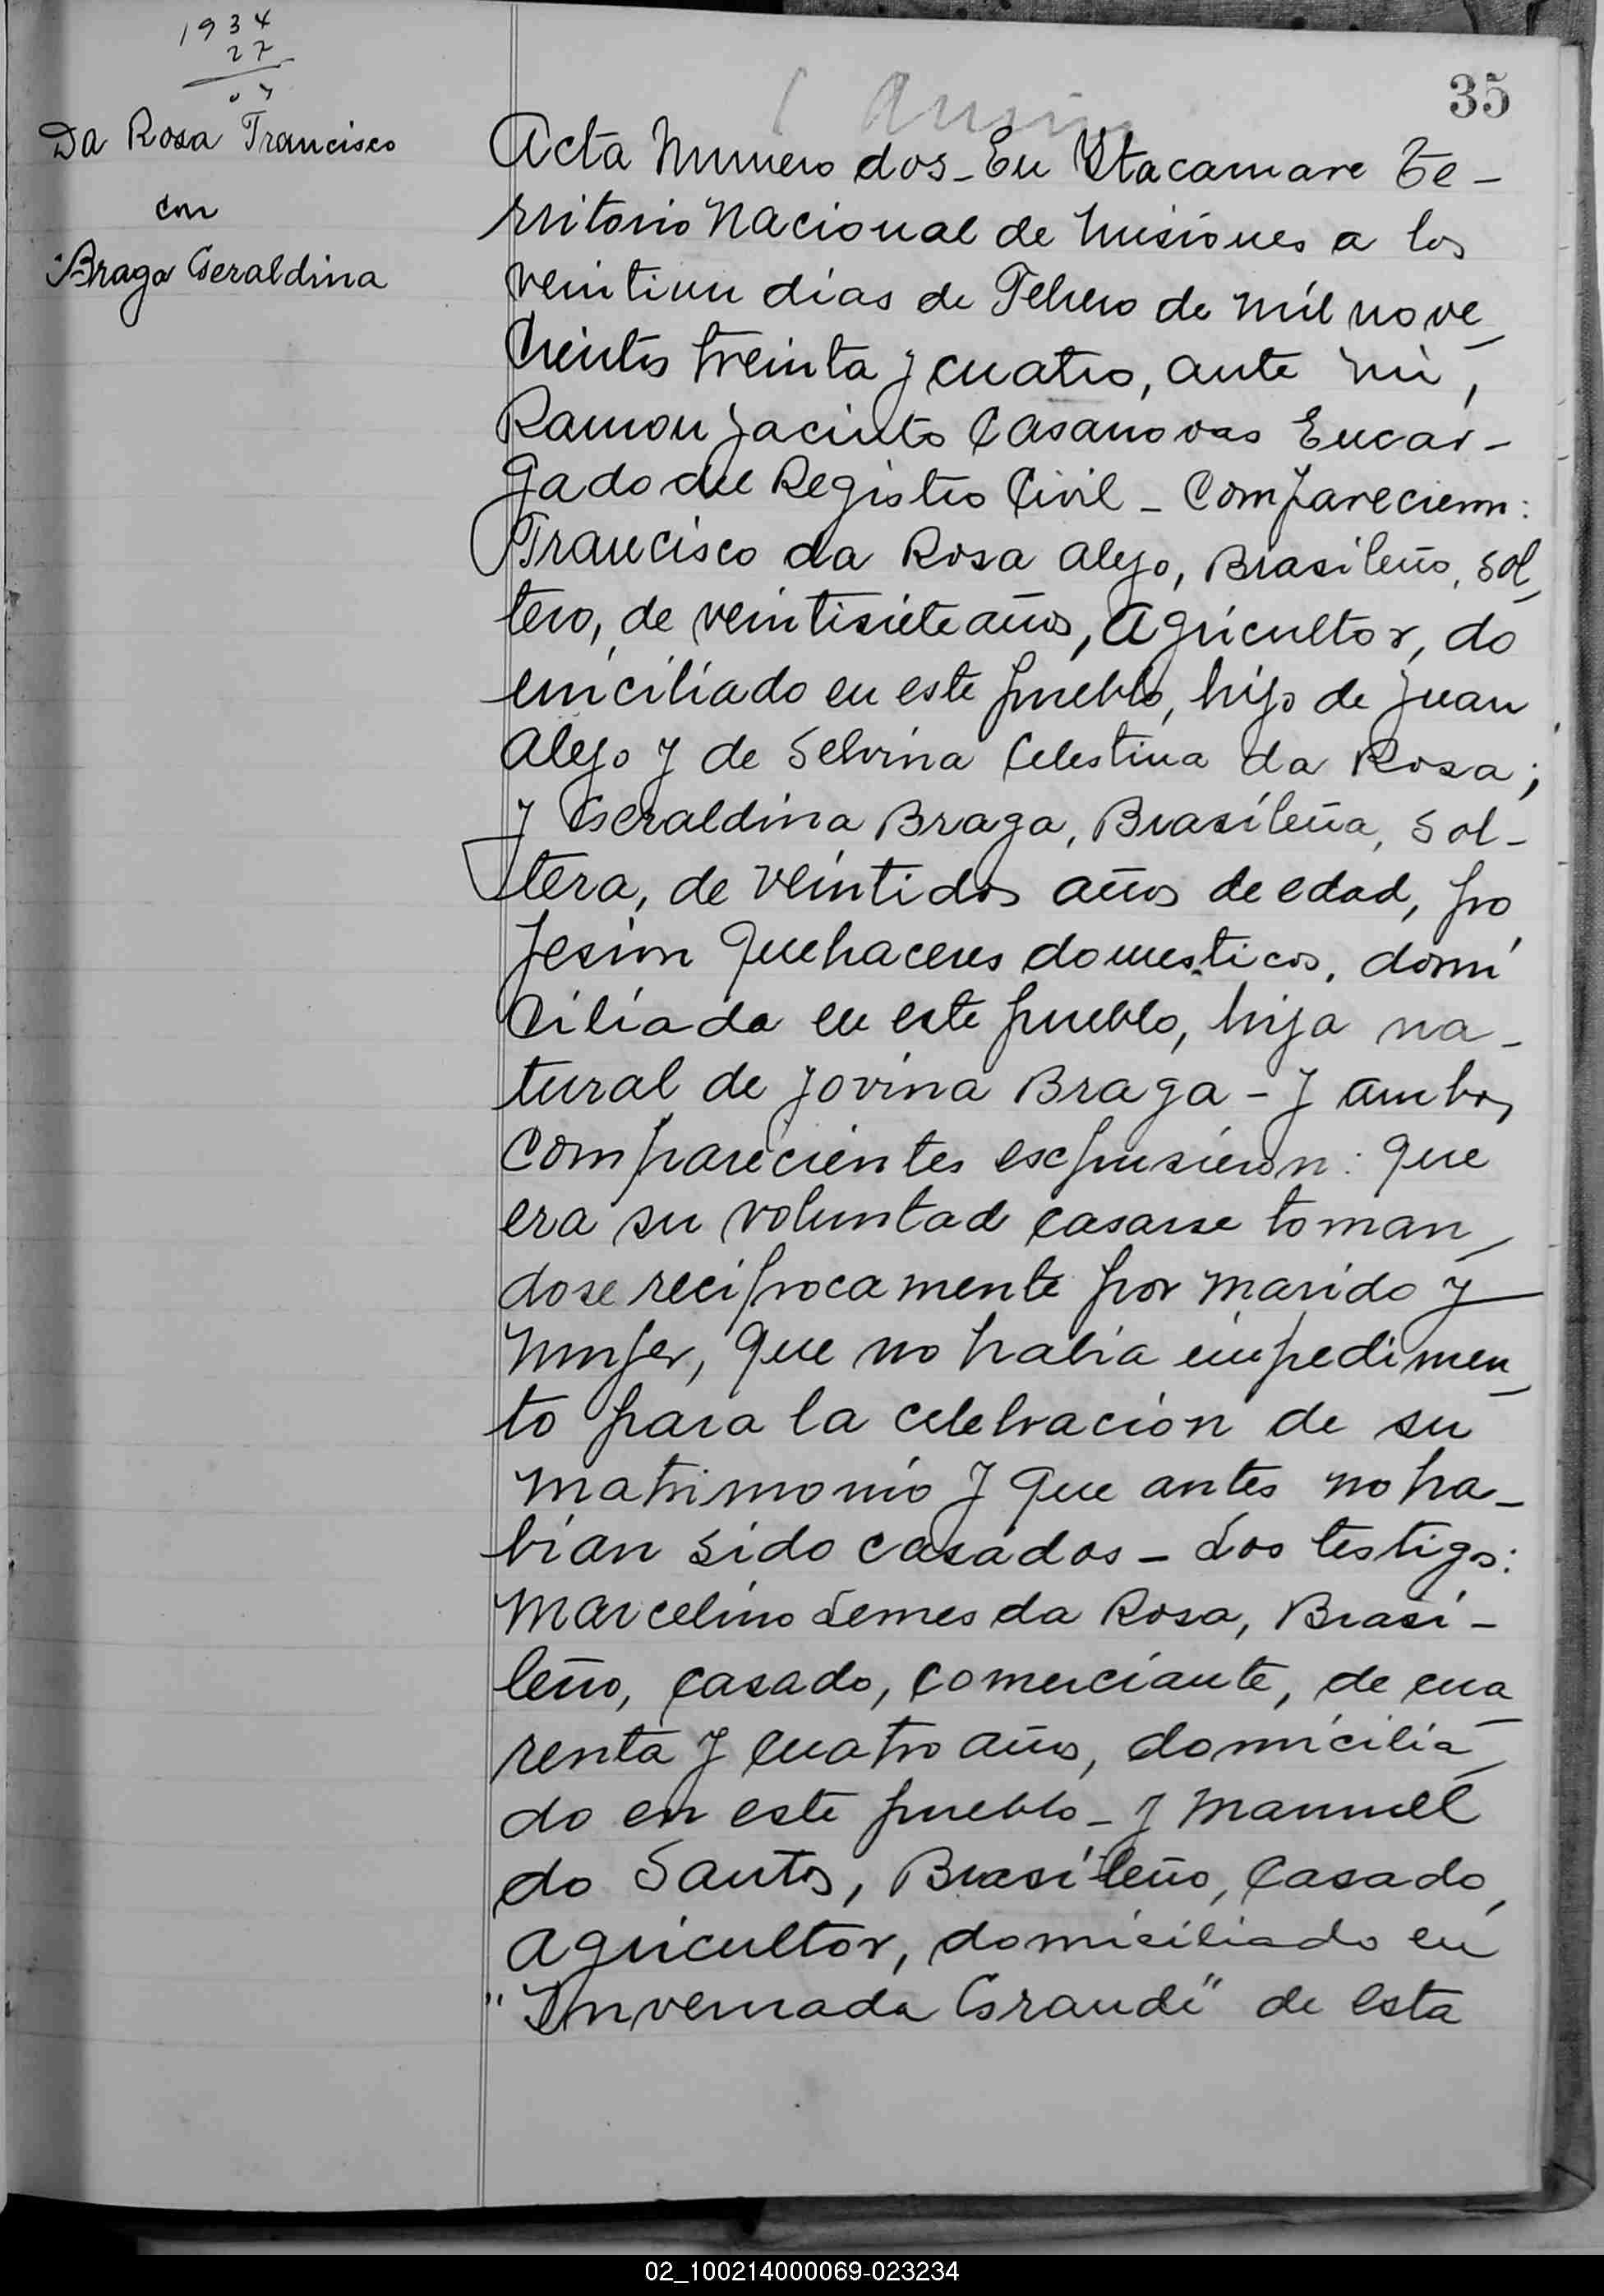 1934
27
07
Da Rosa Francisco
con
Braga Geraldina
35
Acta Numero dos - En Itacaruare Te-
rritorio Nacional de Misiones a los
veintiun dias de Febrero de mil nove
cientos treinta y cuatro, ante mi,
Ramon Jacinto Casanovas Encar-
gado del Registro Civil - Comparecieron:
Francisco da Rosa Alejo, Brasileño, sol
tero, de veintisiete años, Agricultor, do
miciliado en este pueblo, hijo de Juan
Alejo y de Selvina Celestina da Rosa;
y Geraldina Braga, Brasileña, Sol-
tera, de veintidos años de edad, pro
fesion Quehaceres domesticos, domi
ciliada en este pueblo, hija na-
tural de Jovina Braga - y ambos
comparecientes escpusieron: que
era su voluntad casarse toman
dose reciprocamente por marido y
mujer, que no habia impedimen
to para la celebracion de su
matrimonio y que antes no ha-
bian sido casados - Los testigos:
Marcelino Lemes da Rosa, Brasi-
leño, casado, comerciante, de cua
renta y cuatro años, domicilia
do en este pueblo - y Manuel
do Santos, Brasileño, Casado,
Agricultor, domiciliado en
"Invernada Grande" de esta
02_100214000069-023234